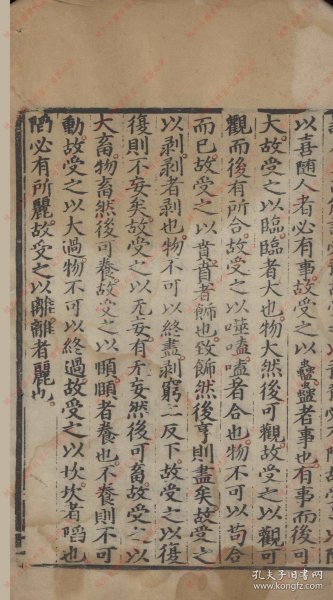 以喜隨人者必有事故受之以蠱蠱者事也有事而後可
大故受之以臨臨者大也物大然後可觀故受之以觀可
觀而後有所合故受之以噬嗑嗑者合也物不可以苟合
而已故受之以賁賁者餙也致餙然後亨則盡矣故受之
以剥剥者剥也物不可以終盡剥窮上反下故受之以復
復則不妄矣故受之以无妄有无妄然後可畜故受之以
大畜物畜然後可養故受之以頤頤者養也不養則不可
動故受之以大過物不可以終過故受之以坎坎者陷也
陷必有所麗故受之以離離者麗也
孔夫子旧书网